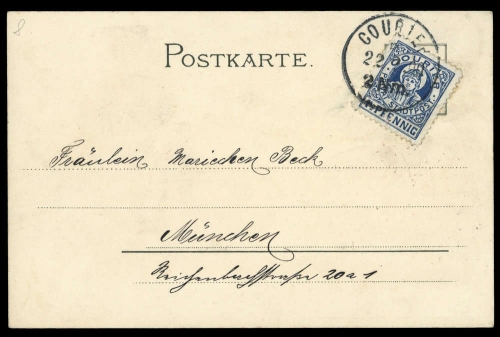 8
POSTKARTE.
COURIER
22 8
2 Nm.
COURIER
STADTPOST
PFENNIG
Fräulein Mariechen Beck
München
Reichenbachstraße 20a 1